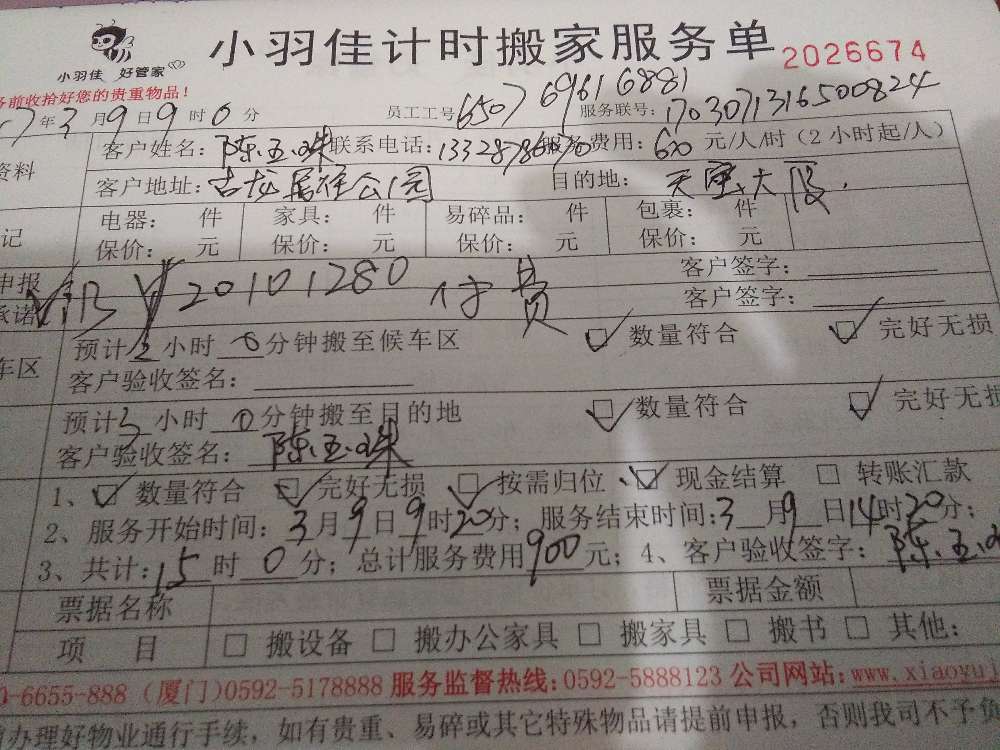 小羽佳计时搬家服务单 2026674
小羽佳 好管家
务前收拾好您的贵重物品！
69616881
7年3月9日9时0分 员工工号 6507 服务联号：170307131650082​4
资料 客户姓名：陈玉珠 联系电话：133287860 服务费用：60 元/人/时（2小时起/人）
客户地址：古龙居住公园 目的地：天宝大厦
记 电器： 件 家具： 件 易碎品： 件 包裹： 件
保价： 元 保价： 元 保价： 元 保价： 元
申报 客户签字：
承诺 20101280 付费 客户签字：
车区 预计 小时 0分钟搬至候车区 数量符合 完好无损
客户验收签名：
预计3小时 0分钟搬至目的地 数量符合 完好无损
客户验收签名：陈玉珠
1、 数量符合 完好无损 按需归位 现金结算 转账汇款
2、服务开始时间：3月9日9时20分；服务结束时间：3月9日14时20分；
3、共计：15时0分；总计服务费用900元；4、客户验收签字：陈玉
票据名称 票据金额
项 目 搬设备 搬办公家具 搬家具 搬书 其他：
0-6655-888（厦门）0592-5178888 服务监督热线：0592-5888123 公司网站：www.xiaoyuj
办理好物业通行手续，如有贵重、易碎或其它特殊物品请提前申报，否则我司不予负